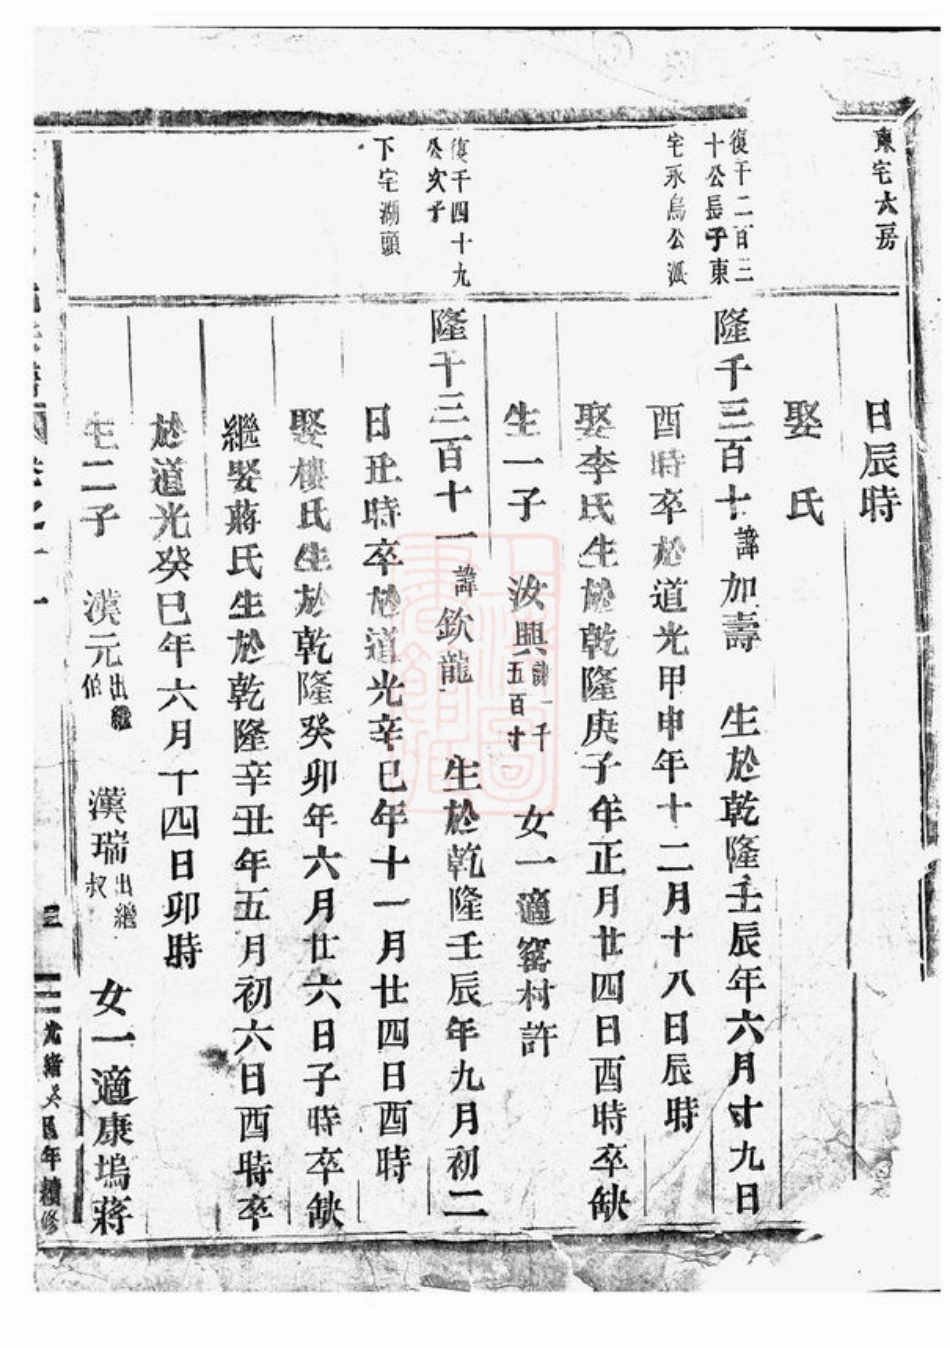 東宅大房
日辰時
娶　氏
復千二百三
十公長子東
宅永烏公派
隆千三百十諱加壽　生於乾隆壬辰年六月廿九日
酉時卒於道光甲申年十二月十八日辰時
娶李氏生於乾隆庚子年正月廿四日酉時卒缺
生一子　汝興諱一千五百廿　女一適窰村許
復千四十九
公次子
下宅湖頭
隆千三百十一諱欽龍　生於乾隆壬辰年九月初二
日丑時卒於道光辛巳年十一月廿四日酉時
娶樓氏生於乾隆癸卯年六月廿六日子時卒缺
繼娶蔣氏生於乾隆辛丑年五月初六日酉時卒
於道光癸巳年六月十四日卯時
生二子　漢元出繼伯　漢瑞出繼叔　女一適康塢蔣
卷之十一
三
光緒癸巳年續修